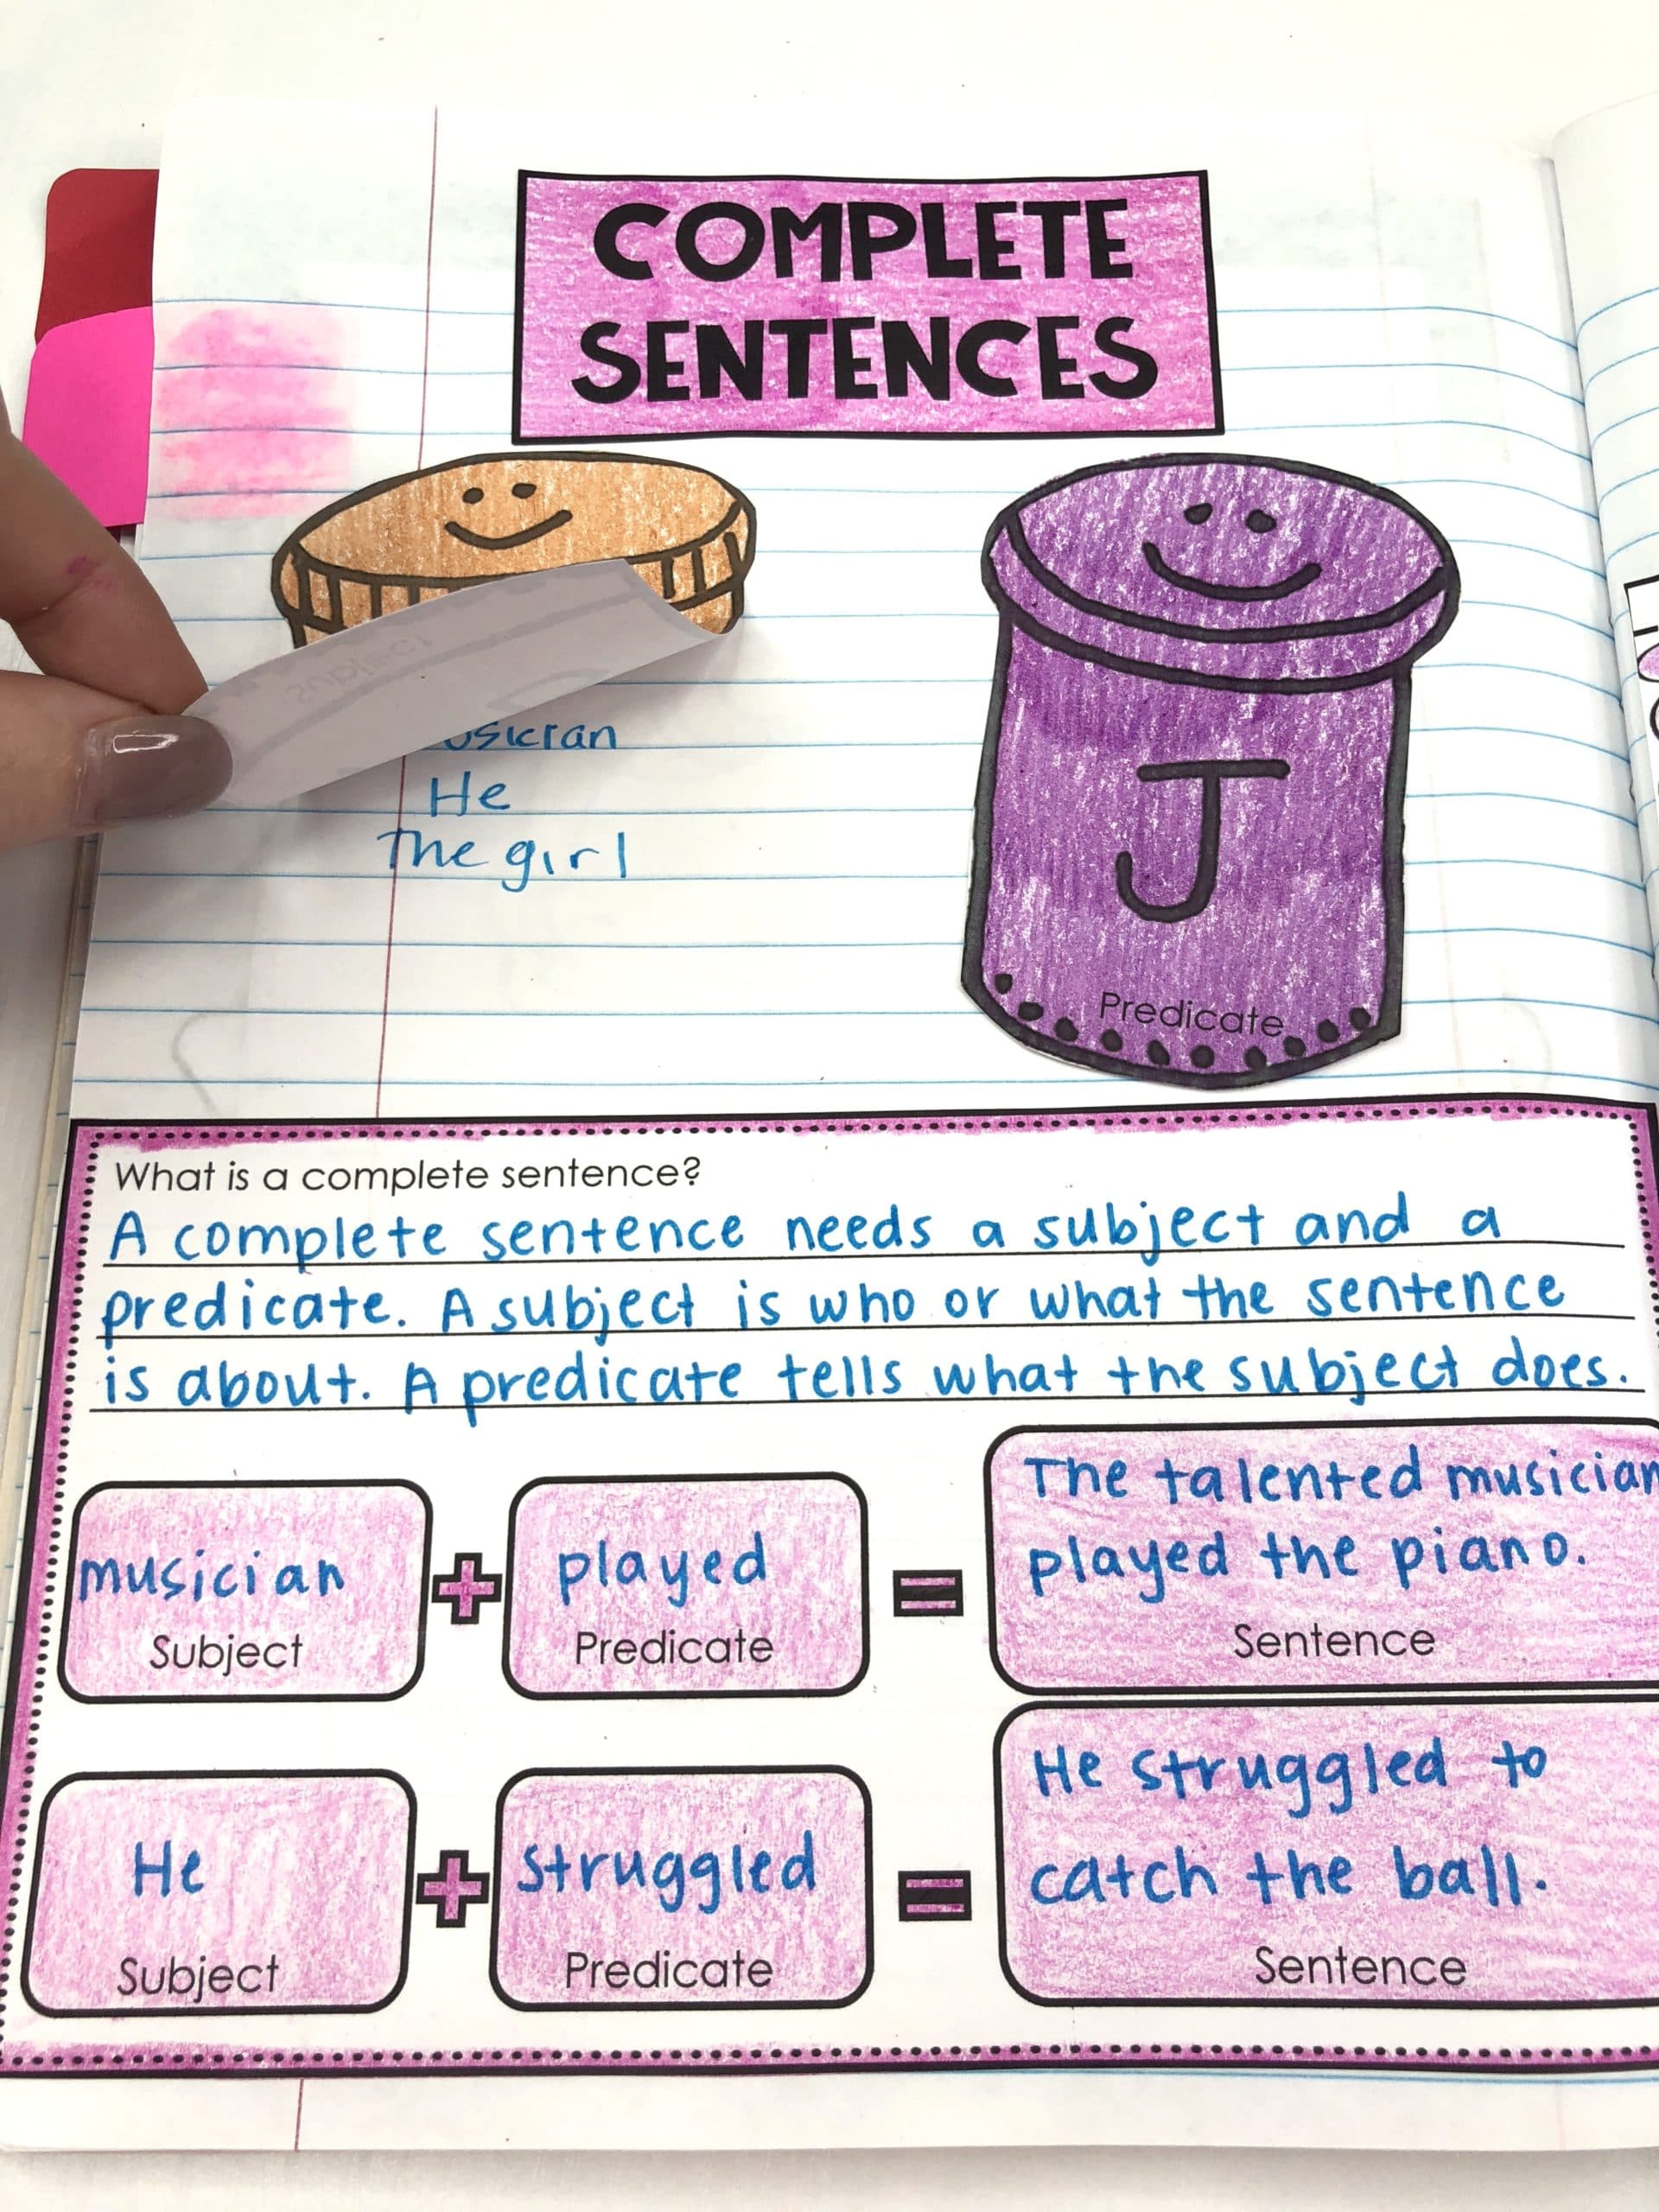 COMPLETE
SENTENCES
subject
He
The girl
J
Predicate
What is a complete sentence?
A complete sentence needs a subject and a
predicate. A subject is who or what the sentence
is about. A predicate tells what the subject does.
The talented musician
played the piano.
musician + played =
Subject Predicate Sentence
He struggled to
catch the ball.
He + struggled =
Subject Predicate Sentence